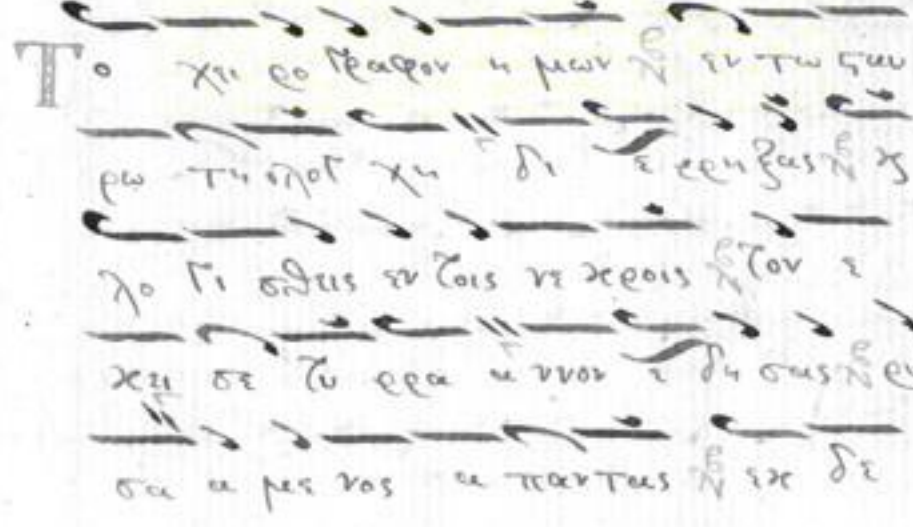 Το χει ρο γραφον η μων εν τω σταυ
ρω τη λογ χη δι ε ερρηξας κς
λο γι σθεις εν τοις νε κροις τον ε
κει σε τυ ρρα α ννον ε δη σας ρυ
σα α με νος α παντας εκ δε